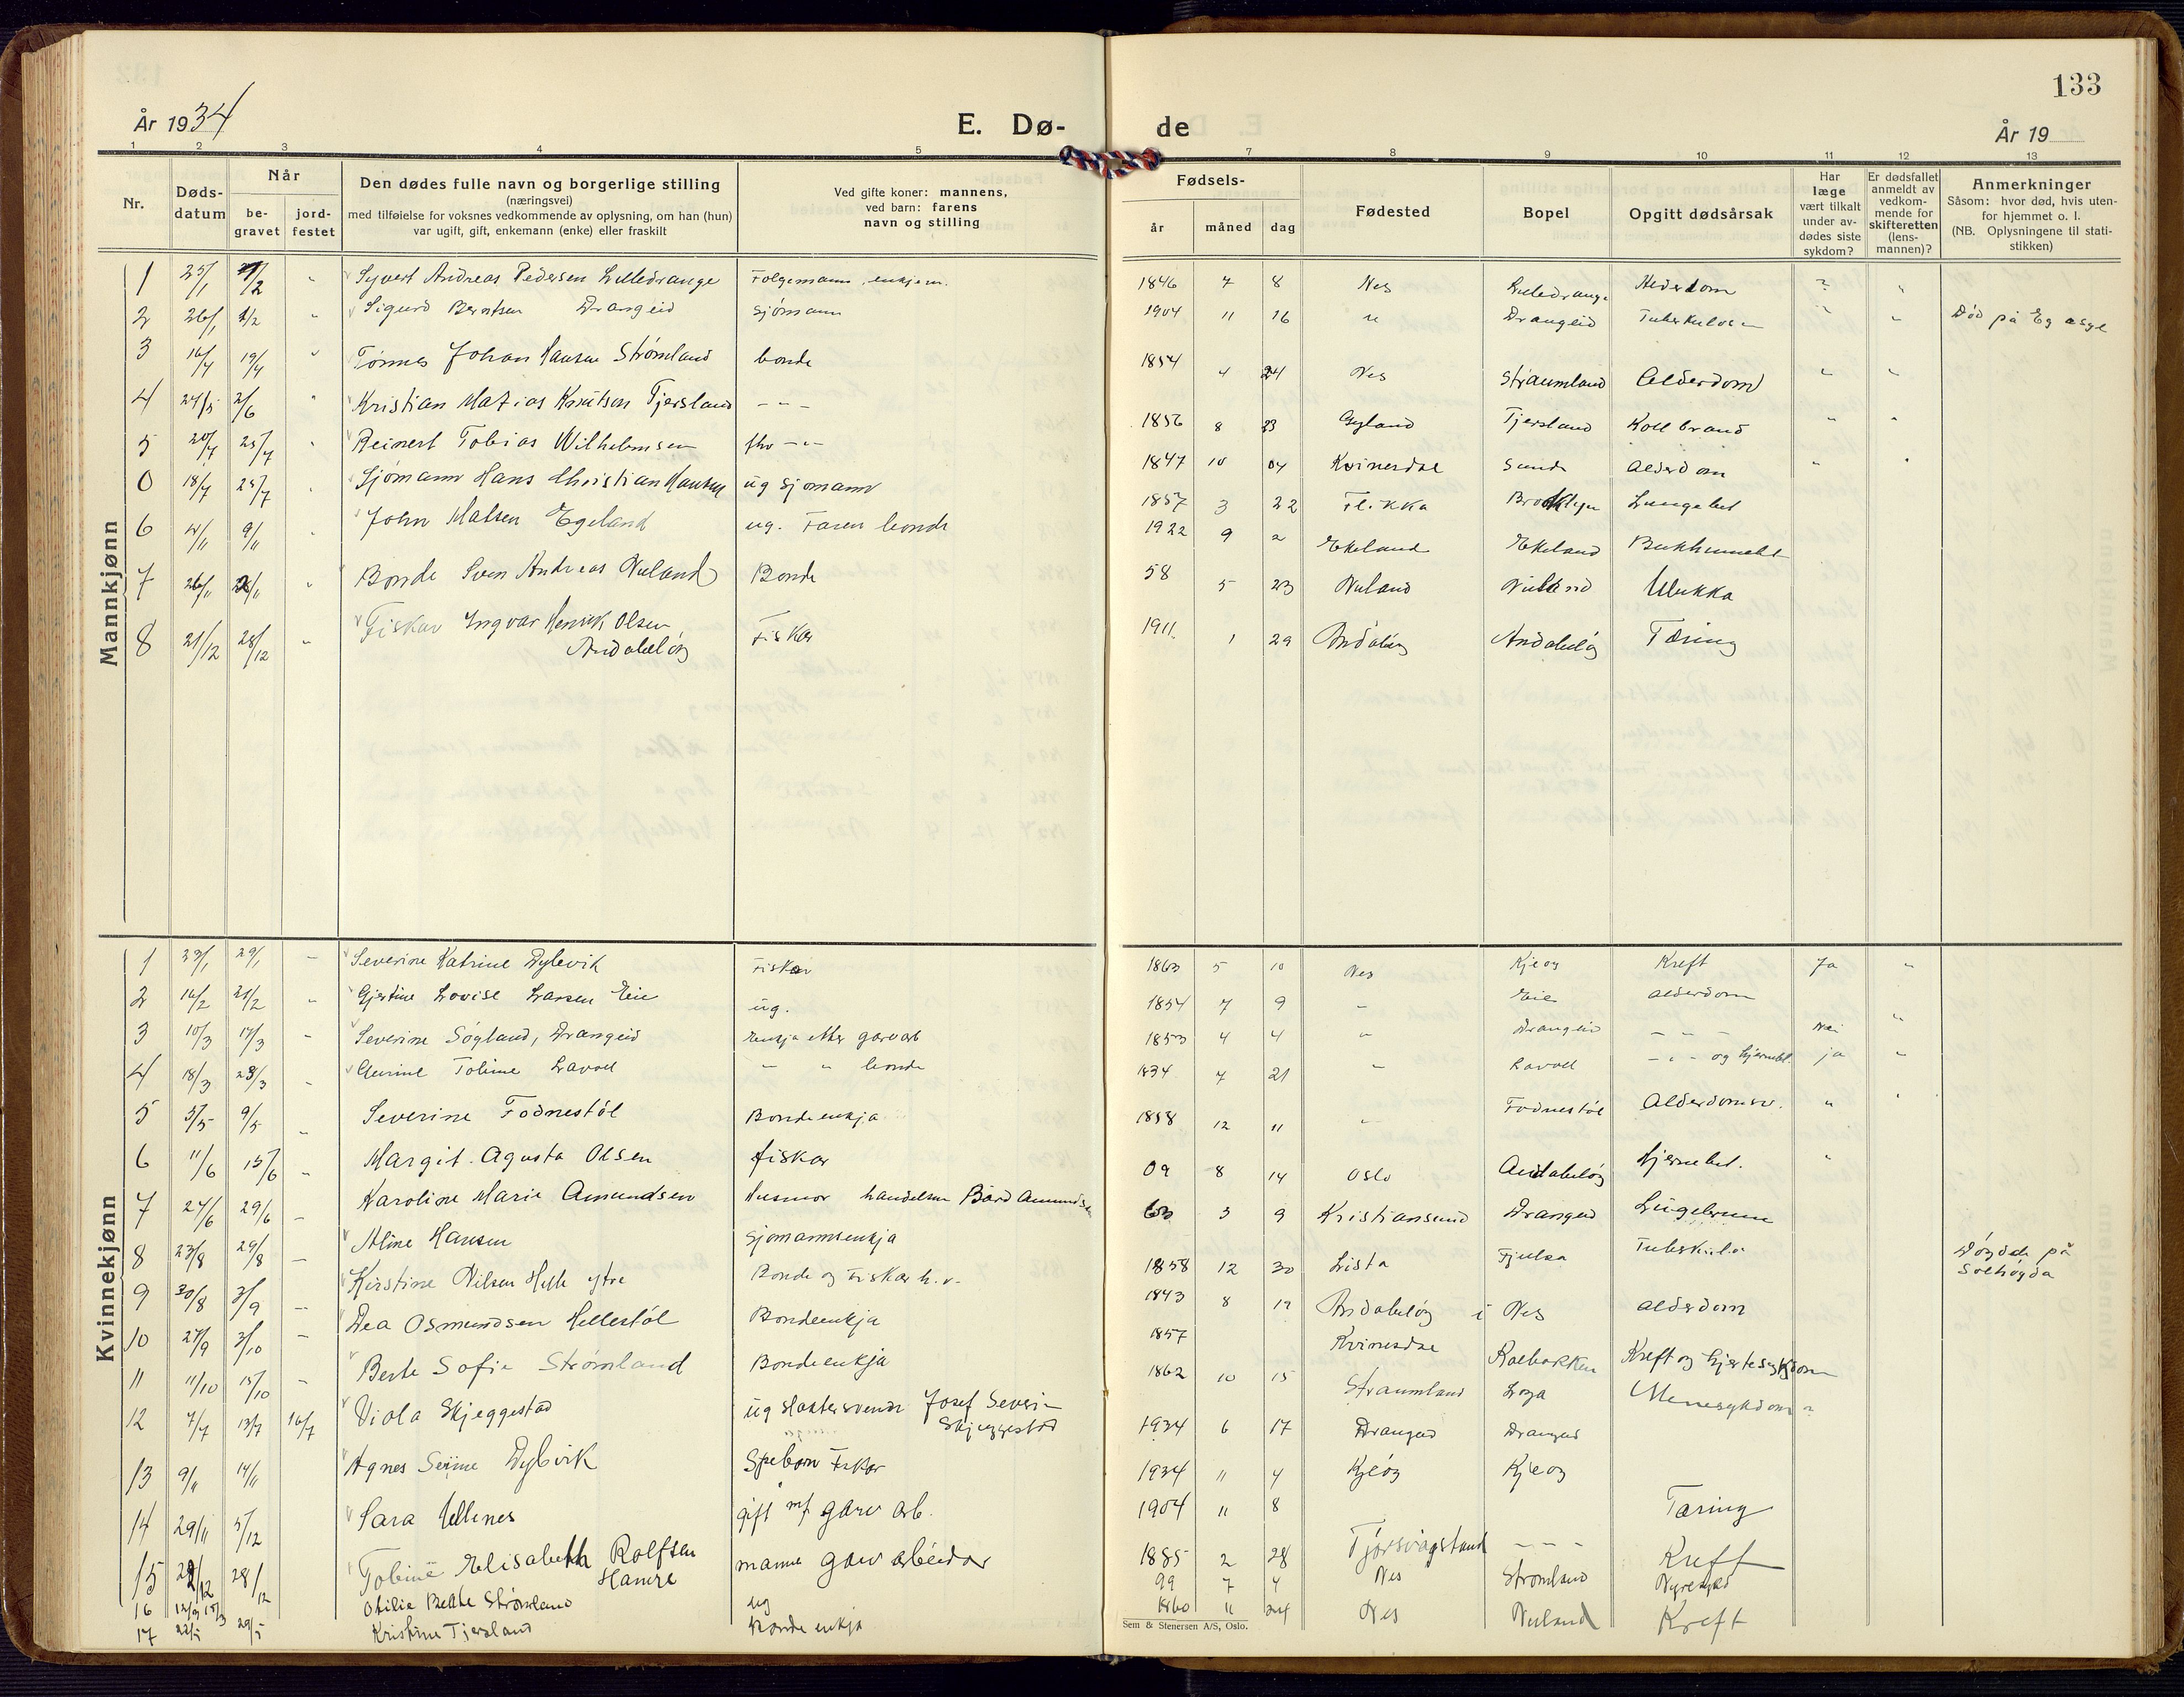 År 1934
E. Dø-
1 2 3 4 5
Nr.
Døds-
datum
Når
be-
gravet
jord-
festet
Den dødes fulle navn og borgerlige stilling
(næringsvei)
med tilføielse for voksnes vedkommende av oplysning, om han (hun)
var ugift, gift, enkemann (enke) eller fraskilt
Ved gifte koner: mannens,
ved barn: farens
navn og stilling
Mannkjønn
1 25/1 Syvert Andreas Pedersen Lilledrange Følgemann, enkjem.
2 26/1 1/2 " Sigurd Berntsen Drangeid Sjømann
3 16/4 19/4 " Tønnes Johan Hansen Strømland bonde
4 24/5 2/6 " Kristian Matias Knutson Tjersland - - -
5 20/7 25/7 " Reinert Tobias Wilhelmsen fhv - " -
0 18/7 25/7 Sjømann Hans Christian Hansen ug sjømann
6 4/11 9/11 John Matsen Egeland ug. Faren bonde
7 26/11 " Bonde Sven Andreas Nuland Bonde
8 21/12 28/12 " Fiskar Ingvar Henrik Olsen Fiskar
Andabeløy
Kvinnekjønn
1 29/1 - Severine Katrine Dybvik Fiskar
2 16/2 21/2 " Gjertine Lovise Larsen Eie ug.
3 10/3 17/3 - Severine Søgland, Drangeid Enkja etter garvarb
4 18/3 23/3 - Tobine Lavoll - " bonde
5 5/5 9/5 - Severine Fodnestøl Bondeenkja
6 11/6 15/6 - Margit Agusta Olsen fiskar
7 24/6 29/6 - Karoline Marie Amundsen Husmor handelsm Bård Amundsen
8 23/8 29/8 - Aline Hansen Sjømannsenkja
9 30/8 3/9 - Kirstine Nilsen Hylle ytre Bonde og Fiskar h. v.
10 27/9 3/10 - Dea Osmundsen Hellestøl Bondeenkja
11 11/10 15/10 - Berte Sofie Strømland Bondeenkja
12 7/7 13/7 16/7 Viola Skjeggestad ug slaktersvend Josef Severin
Skjeggestad
13 9/11 14/11 Agnes Dybvik Spebarn Fiskar
14 29/11 5/12 Sara Ullenes gift m/ garv arb.
15 28/12 Tobine Elisabeth Rolfsen mann garv arbeidar
Hamre
16 Otilie Beate Strømland ug
17 22/5 29/5 Kristine Tjersland Bonde enkja
133
de
År 19
7 8 9 10 11 12 13
Fødsels-
år måned dag
Fødested
Bopel
Opgitt dødsårsak
Har
læge
vært tilkalt
under av-
dødes siste
sykdom?
Er dødsfallet
anmeldt av
vedkom-
mende for
skifteretten
(lens-
mannen)?
Anmerkninger
Såsom: hvor død, hvis uten-
for hjemmet o. l.
(NB. Oplysningene til stati-
stikken)
1846 7 8 Nes Lilledrange Alderdom
1904 11 16 " Drangeid Tuberkulose " Død på Eg asyl
1854 4 24 Nes Straumland Alderdom " "
1856 8 23 Gyland Tjersland Koldbrand " "
1847 10 04 Kvinesdal Sunde Alderdom "
1857 3 22 Flikka Brooklyn Lungebet
1922 9 2 Ekeland Ekeland
58 5 23 Nuland Nuland Ulukka
1911 1 29 Andabeløy Andabeløy Tæring
1863 5 10 Nes Kjeøy Kreft Ja "
1854 7 9 - Eie Alderdom "
1853 4 4 " Drangeid - " - Nei
1834 7 21 - Lavoll - " - og hjernebl. ja "
1858 12 11 " Fodnestøl Alderdomsv. " "
09 8 14 Oslo Andabeløy hjernebet. "
63 3 9 Kristiansund Drangeid
1858 12 30 Lista Fjulsa Døydde på
Solhøgda
1843 8 12 Andabeløy i Nes alderdom
1857 Kvinesdal Kreft og hjertesykdom
1862 10 15 Straumland Loga
1934 6 17 Drangeid Drangeid
1934 11 4 Kjeøy Kjeøy
1904 11 8 Tæring
1885 2 28 Tjørsvågstrand - - - Kreft
99 7 4 Nes Strømland
1860 11 24 Nes Nuland Kreft
Sem & Stenersen A/S, Oslo.